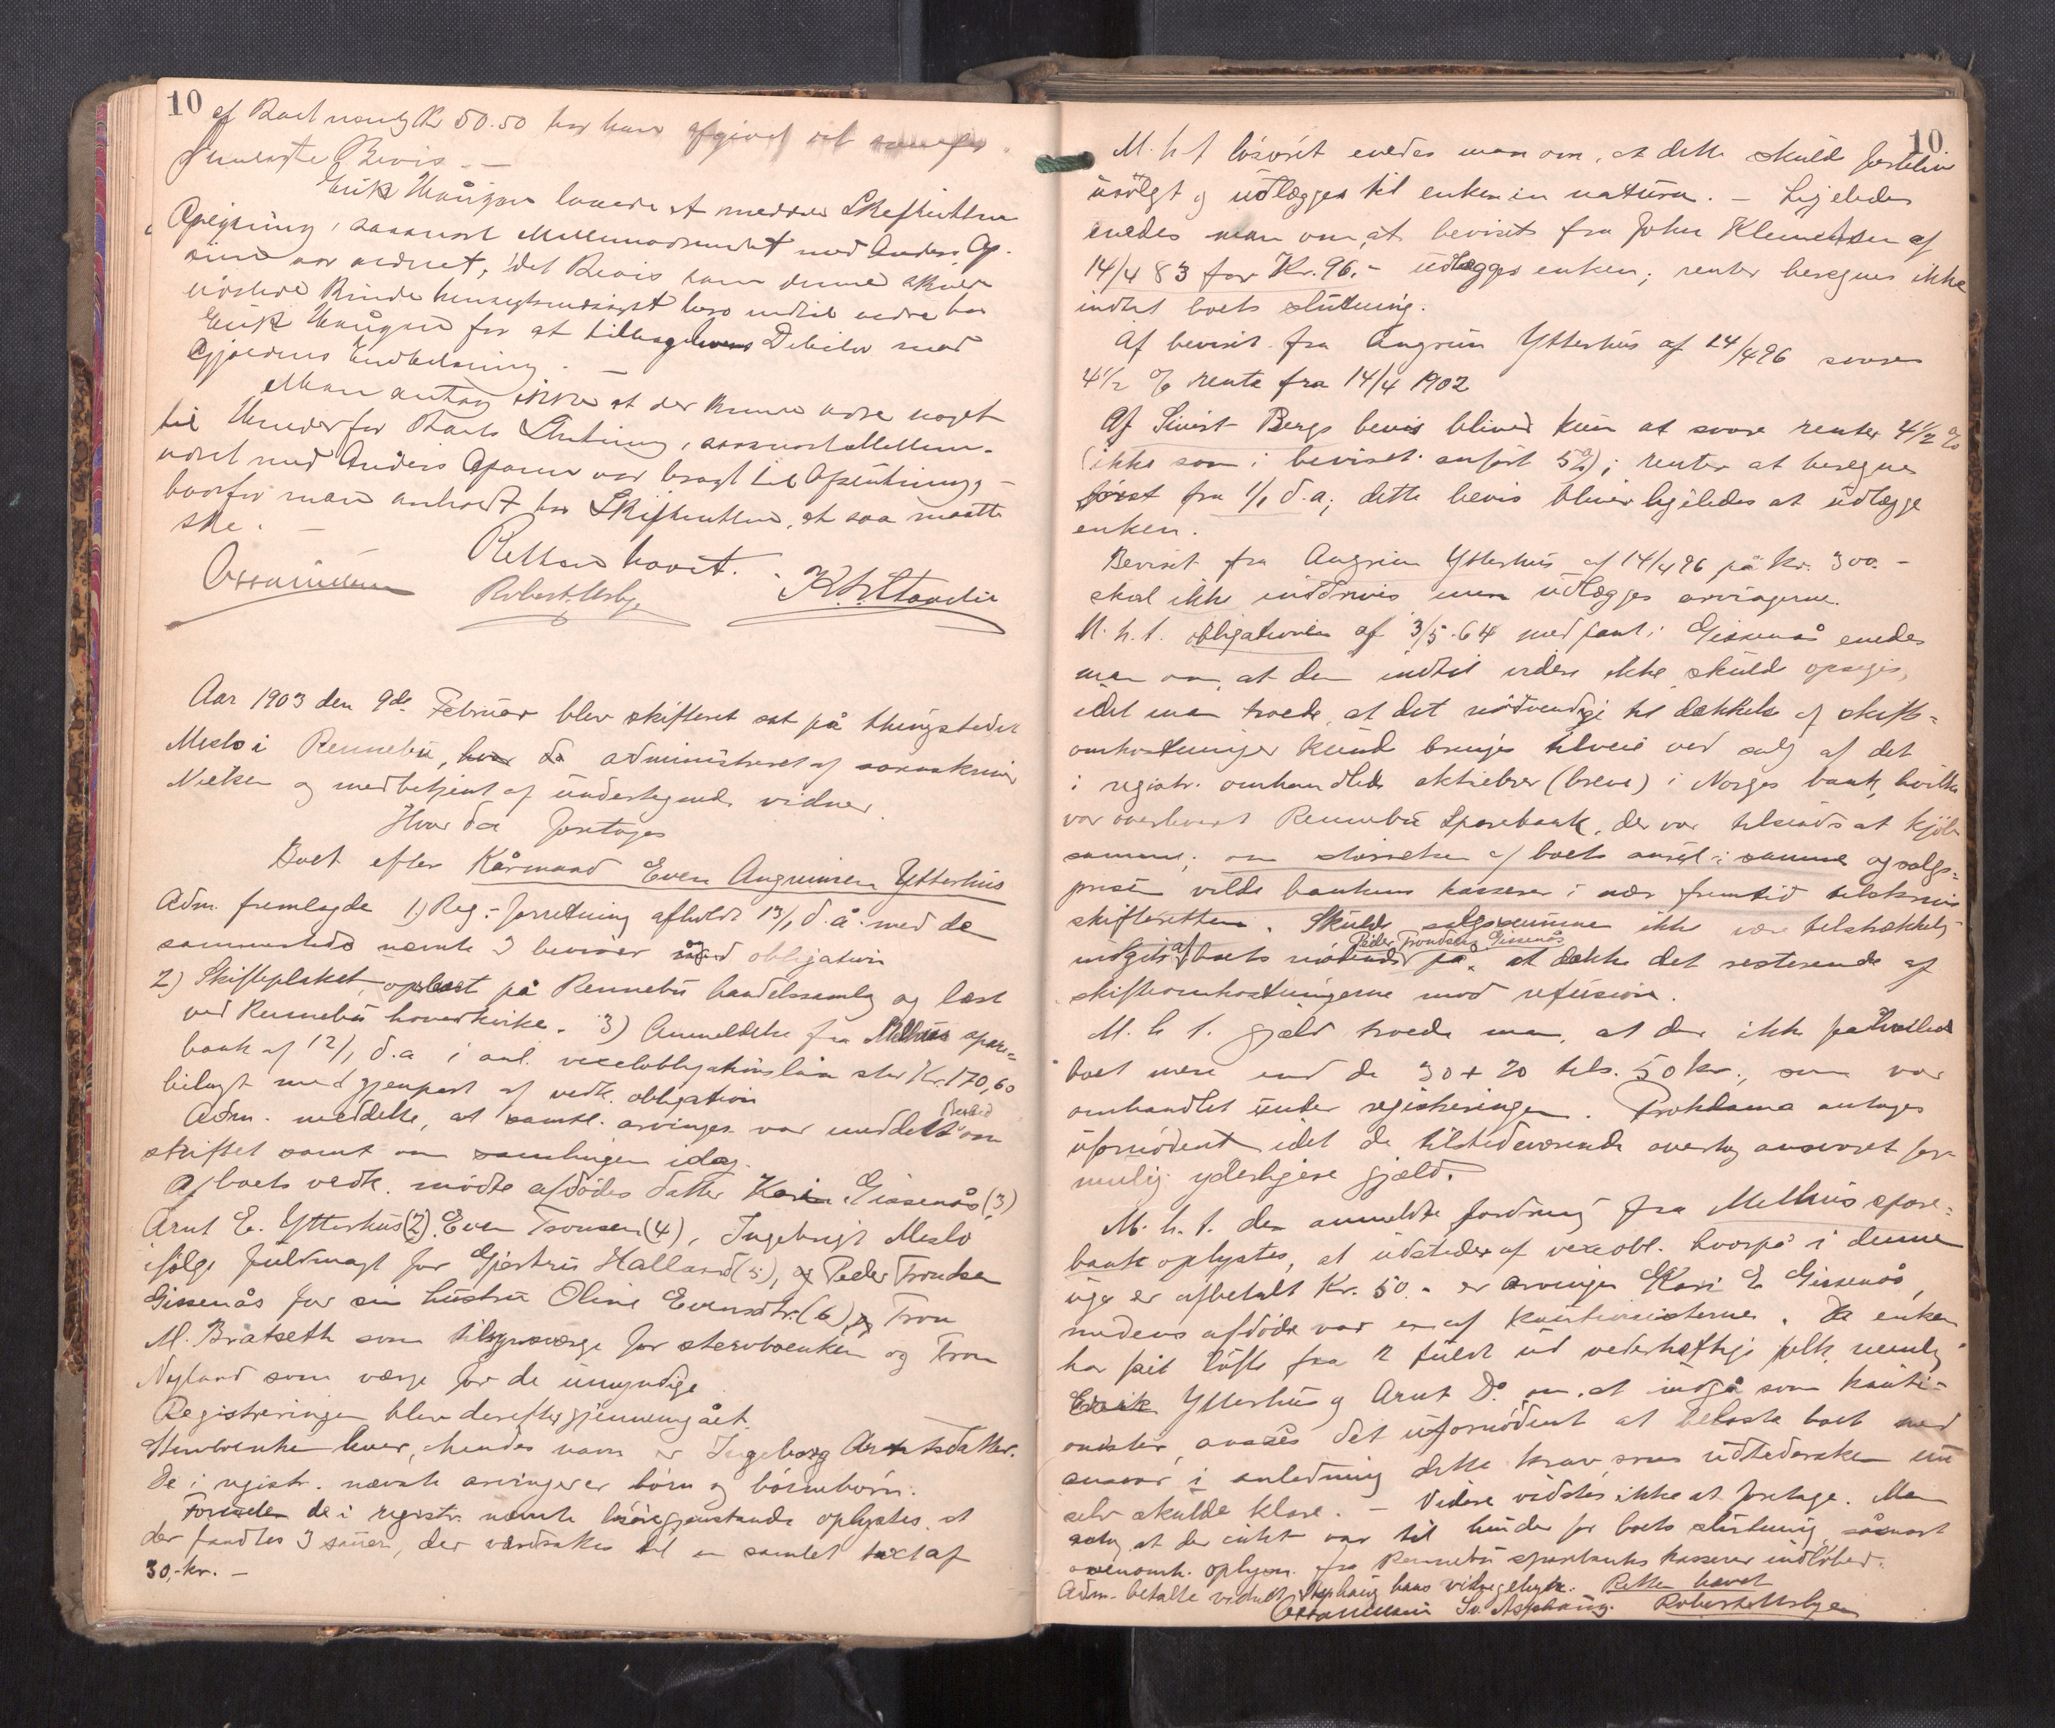 10
af Boet nemlig Kr 50.50 har han afgivet
Bevis. —
Erik Haugen lovede at meddele Skifteretten
saasnart Mellemværendet med Anders
var ordnet, idet Bevis som denne
kunde hensigtsmæssigt bero indtil videre hos
Erik Haugen for at tilbagelevere Debitor mod
Gjældens Indbetaling.
Man antog ikke at der kunde være noget
til Hinder for Boets Slutning, saasnart Mellem-
været med Anders var bragt til Afslutning, –
hvorfor man anholdt hos Skifteretten, at saa maatte
ske. —
Retten hævet.
Robert Usbye
Aar 1903 den 9de Februar blev skifteret sat på thingstedet
Meslo i Rennebu, hvor da administreret af sorenskriver
Nielsen og medbetjent af undertegnede vidner.
Hvor da foretoges
Boet efter Kårmand Even Angrimsen Ytterhus
Adm. fremlagde 1) Reg.-forretning afholdt 13/1 d. å. med de
sammesteds nævnte 3 beviser og obligation
2) Skifteplakat, opslaaet på Rennebu handelssamlag og læst
ved Rennebu hovedkirke. 3) Anmeldelse fra Melhus spare=
bank af 12/1 d. a i anl. vexelobligationslån stor Kr. 170,60
bilagt med gjenpart af vedk. obligation
Adm. meddelte, at samtl. arvinger var meddelt Besked om
skiftet samt om samlingen idag.
Af boets vedk. mødte afdødes datter Kari Gissenås (3)
Arnt E. Ytterhus (2). Even Tronsen (4), Ingebrigt Meslo
ifølge fuldmagt for Gjertrud Halland (5), og Peder Trondsen
Gissenås for sin hustru Oline Evensdtr. (6), Tron
M. Bratseth som tilsynsværge for stervboenken og Tron
Nyland som værge for de umyndige
Registreringen blev derefter gjennemgået.
Stervboenken lever, hendes navn er Ingeborg Arntsdatter.
De i registr. nævnte arvinger er børn og børnebørn.
Foruden de i registr. nævnte løsøregjenstande oplystes at
der fandtes 3 sauer, der værdsattes til en samlet taxt af
30,- kr. —
10.
M. h. t løsøret enedes man om, at dette skulde forblive
usolgt og udlægges til enken in natura. – Ligeledes
enedes man om, at beviset fra John Klemetsen af
14/4 83 for Kr. 96. – udlægges enken; renter beregnes ikke
indtil boets slutning.
Af beviset fra Angrim Ytterhus af 14/4 96 svares
4½ % rente fra 14/4 1902
Af Sivert Bergs bevis bliver kun at svare renter 4½ %
(ikke som i beviset anført 5%); renter at beregne
først fra 1/1 d. a; dette bevis bliver ligeledes at udlægge
enken.
Beviset fra Angrim Ytterhus af 14/4 96 på kr. 300. –
skal ikke inddrives men udlægges arvingerne.
M. h. t. obligationen af 3/5.64 med pant i Gissenås enedes
man om, at den indtil videre ikke skulde opsiges,
idet man troede, at det nødvendige til dækkelse af skifte=
omkostninger kunde bringes tilveie ved salg af det
i registr. omhandlede aktiebrev (breve) i Norges bank, hvilke
var overleveret Rennebu Sparebank, der var tilsinds at kjøbe
samme; om størrelsen af boets andel i samme og salgs=
prisen vilde bankens kasserer i nær fremtid tilskrive
skifteretten. Skulde salgssummen ikke være tilstrækkelig
indgik af boets mødende Peder Trondsen Gissenås på at dække det resterende af
skifteomkostningerne mod refusion.
M. h t. gjæld troede man, at der ikke påhvilede
boet mere end de 30 + 20 tils. 50 kr., som var
omhandlet under registreringen. Proklama antoges
ufornødent idet de tilstedeværende overtog ansvaret for
mulig yderligere gjæld.
M. h. t. den anmeldte fordring fra Melhus spare=
bank oplystes, at udsteder af vexelobl. hvorpå i denne
uge er afbetalt Kr. 50. – er arvingen Kari E Gissenås,
medens afdøde var en af kautionisterne. Da enken
har fået løfte fra 2 fuldt ud vederhæftige folk, nemlig
Erik Ytterhus og Arnt Do om at indgå som kauti=
onister, ansås det ufornødent at belaste boet med
ansvar i anledning dette krav, som udstedersken nu
selv skulde klare. – Videre vidstes ikke at foretage. Man
antog, at der intet var til hinder for boets slutning, såsnart
ovenomh. oplysn. fra Rennebu sparebanks kasserer indløber.
Adm. betalte vidnet Asphaug hans vidnegebyr. Retten hævet
Sv. Asphaug. Robert Usbye